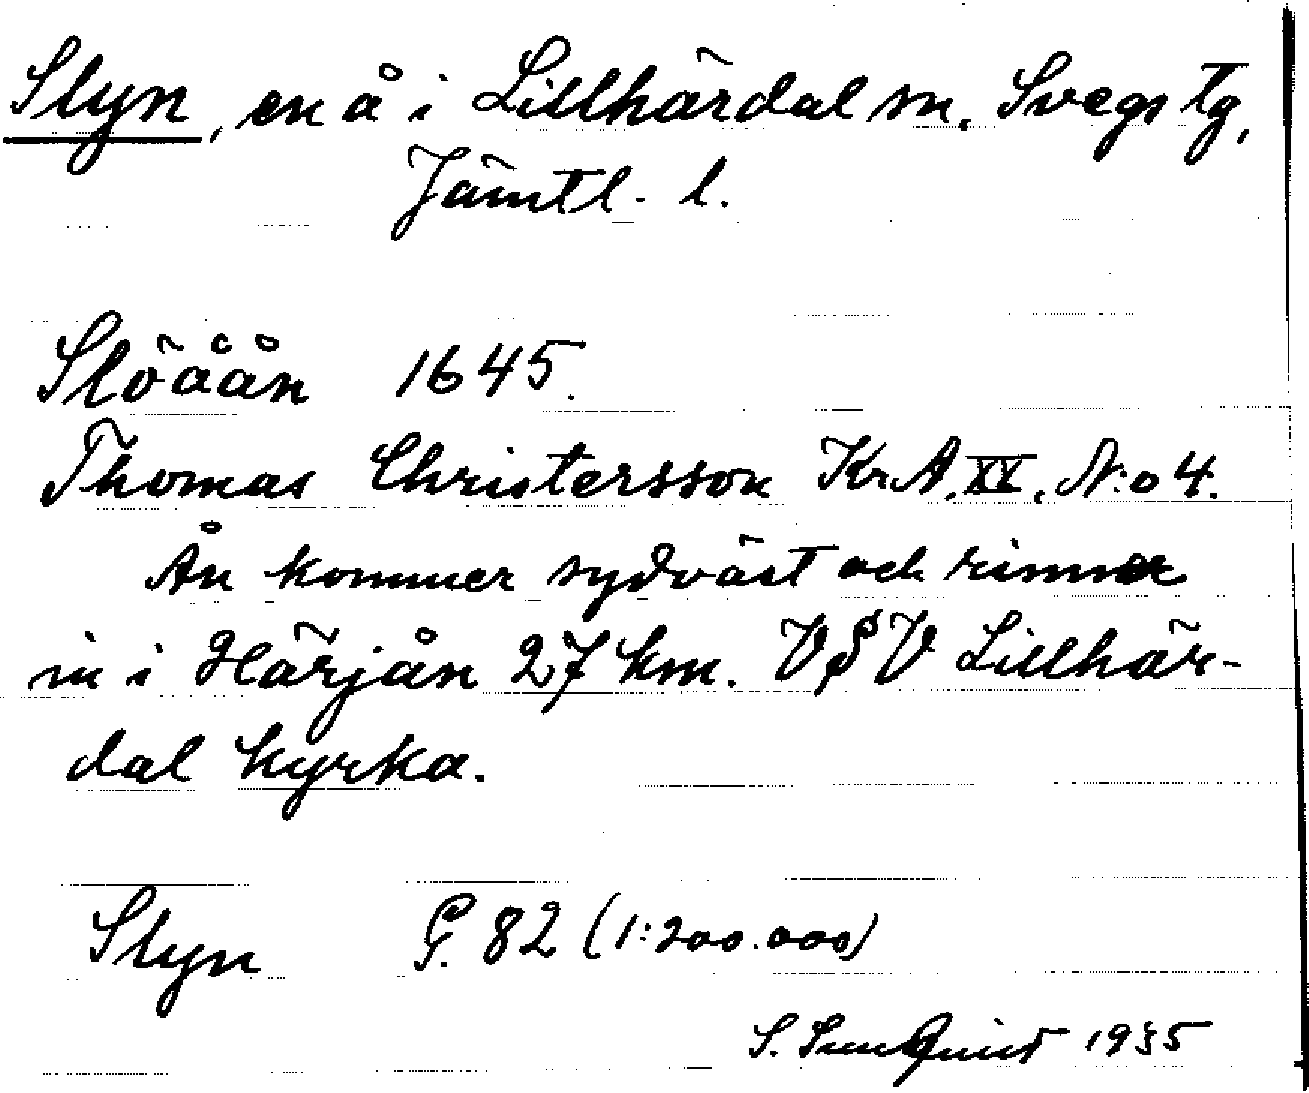 Slyn, en å i Lillhärdal sn. Svegs tg,
Jämtl. l.
Slöåån 1645.
Thomas Christersson Kr.A. XV. N:o 4.
Ån kommer sydväst och rinner
in i Härjån 27 km. VSV Lillhär-
dal kyrka.
Slyn G. 82 (1:200.000)
S. 1935